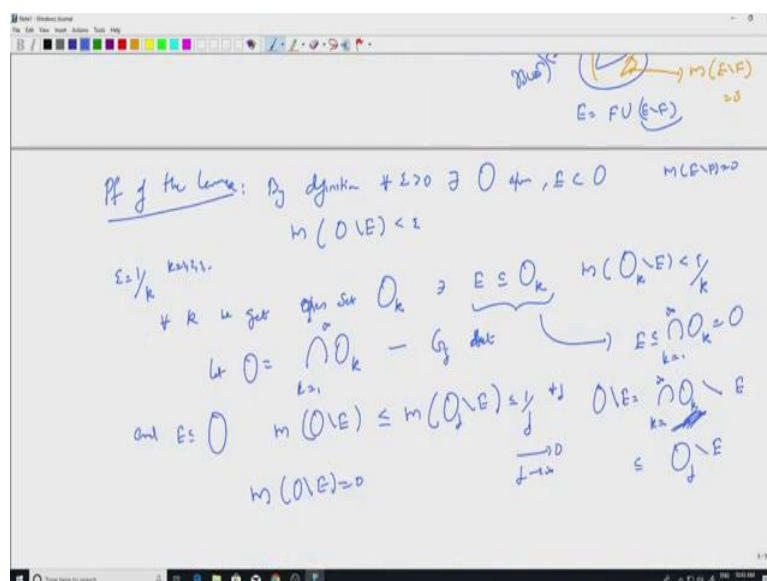 Note1 - Windows Journal
File Edit View Insert Actions Tools Help
m(E\F)
=0
E = F ∪ (E\F)
Pf of the Lemma: By definition ∀ ε>0 ∃ O open, E ⊂ O m(E\F)=0
m(O\E) < ε
ε = 1/k k=1,2,..
∀ k we get open set O_k ∋ E ⊆ O_k m(O_k\E) < 1/k
Let O = ⋂_{k=1}^∞ O_k - G_δ set → E ⊆ ⋂_{k=1}^∞ O_k = O
and E ⊆ O m(O\E) ≤ m(O_j\E) ≤ 1/j ∀j O\E = ⋂_{k=1}^∞ O_k \ E
→0 j→∞ ⊆ O_j\E
m(O\E)=0
Type here to search